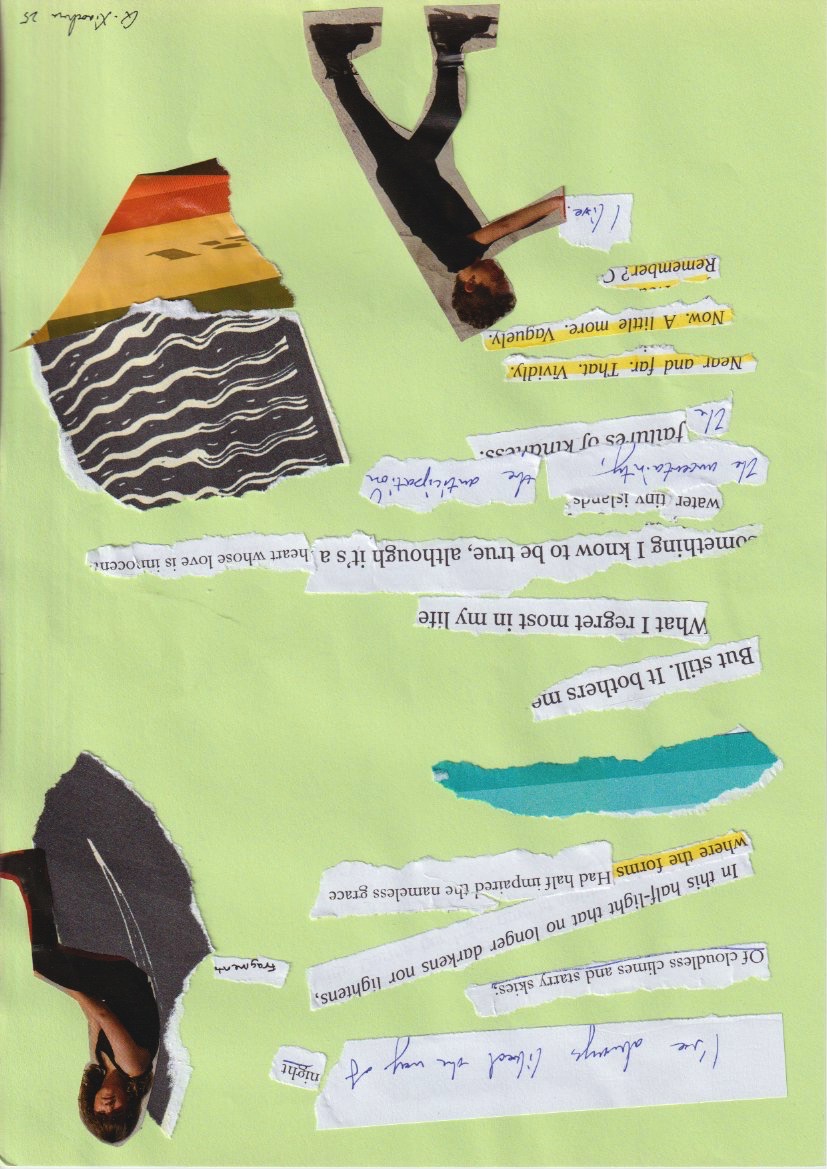 I've always liked the way of night
Of cloudless climes and starry skies;
In this half-light that no longer darkens nor lightens,
Fragments
where the forms Had half impaired the nameless grace
But still. It bothers me
What I regret most in my life
something I know to be true, although it's a heart whose love is innocent
water, tiny islands
The uncertainty, the anticipation
The failures of kindness.
Near and far. That. Vividly.
Now. A little more. Vaguely.
Remember? C
I live.
25